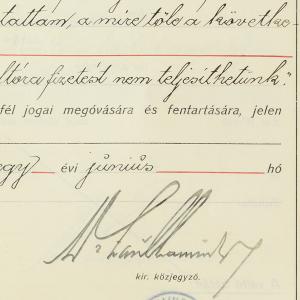 tattam, a mire tőle a követke-
ltóra fizetést nem teljésithetünk."
fél jogai megóvására és fentartására, jelen
egy évi június hó
kir. közjegyző.